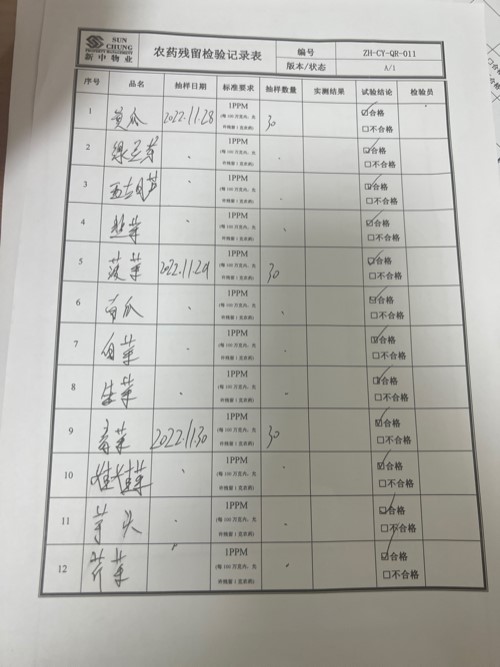 SUN
CHUNG
PROPERTY MANAGEMENT
新中物业
农药残留检验记录表
编号
ZH-CY-QR-011
版本/状态
A/1
序号 品名 抽样日期 标准要求 抽样数量 实测结果 试验结论 检验员
1 黄瓜 2022.11.28 1PPM 30 ☑合格
(每100万克内，允
许残留1克农药) ☐不合格
2 绿豆芽 . 1PPM . ☑合格
(每100万克内，允
许残留1克农药) ☐不合格
3 . 1PPM . ☑合格
(每100万克内，允
许残留1克农药) ☐不合格
4 韭菜 . 1PPM . ☑合格
(每100万克内，允
许残留1克农药) ☐不合格
5 菠菜 2022.11.29 1PPM 30 ☑合格
(每100万克内，允
许残留1克农药) ☐不合格
6 . 1PPM . ☑合格
(每100万克内，允
许残留1克农药) ☐不合格
7 白菜 . 1PPM . ☑合格
(每100万克内，允
许残留1克农药) ☐不合格
8 生菜 . 1PPM . ☑合格
(每100万克内，允
许残留1克农药) ☐不合格
9 2022.11.30 1PPM 30 ☑合格
(每100万克内，允
许残留1克农药) ☐不合格
10 娃娃菜 . 1PPM . ☑合格
(每100万克内，允
许残留1克农药) ☐不合格
11 芋头 . 1PPM . ☑合格
(每100万克内，允
许残留1克农药) ☐不合格
12 芹菜 1PPM . ☑合格
(每100万克内，允
许残留1克农药) ☐不合格